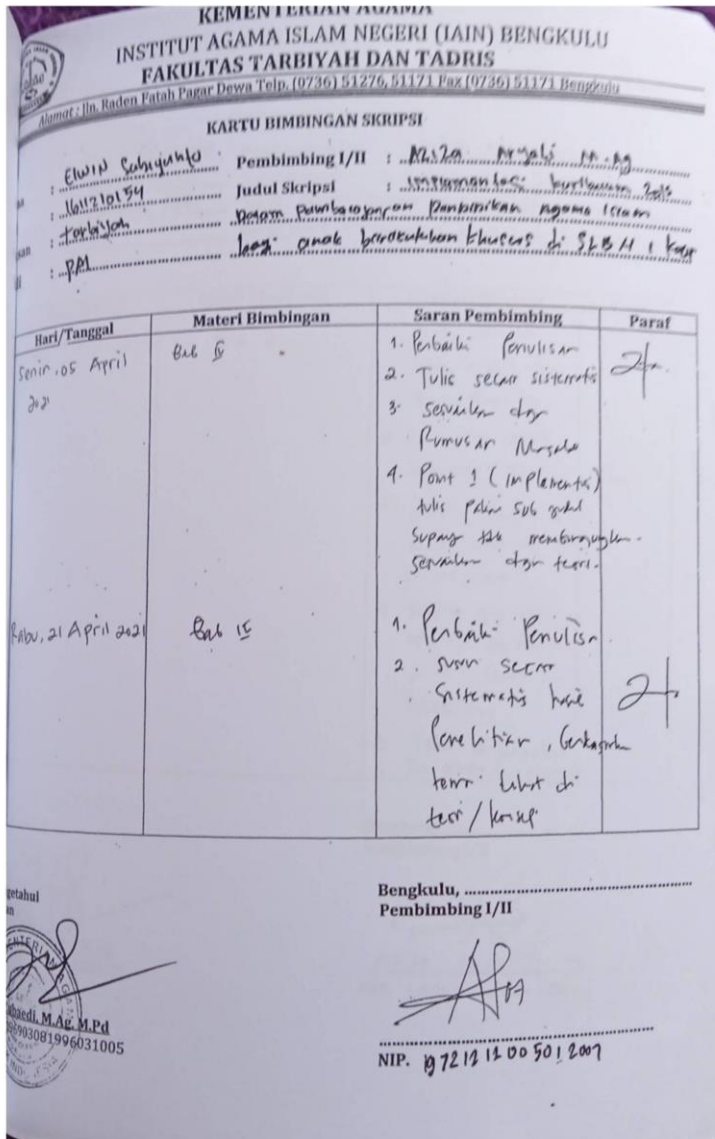 KEMENTERIAN AGAMA
INSTITUT AGAMA ISLAM NEGERI (IAIN) BENGKULU
FAKULTAS TARBIYAH DAN TADRIS
Alamat : Jln. Raden Fatah Pagar Dewa Telp. (0736) 51276, 51171 Fax (0736) 51171 Bengkulu
KARTU BIMBINGAN SKRIPSI
: Elwin Pembimbing I/II : M.Ag
: 1611210154 Judul Skripsi : kurikulum
: Tarbiyah Dalam Agama Islam
: PAI bagi anak khusus di SLBN 1 Kaur
Hari/Tanggal Materi Bimbingan Saran Pembimbing Paraf
Senin, 05 April 2021 Bab IV 1. Perbaiki Penulisan
2. Tulis secara sistematis
3. Sesuaikan dgn
Rumusan Masalah
4. Point 1 (implementasi)
tulis sub judul
supaya tdk membingungkan.
sesuaikan dgn teori.
Rabu, 21 April 2021 Bab IV 1. Perbaiki Penulisan
2. secara
sistematis hasil
Penelitian,
lihat di
teori/konsep
getahui
an
Bengkulu, ....................
Pembimbing I/II
M.Ag, M.Pd
96903081996031005
NIP. 197212112005012007